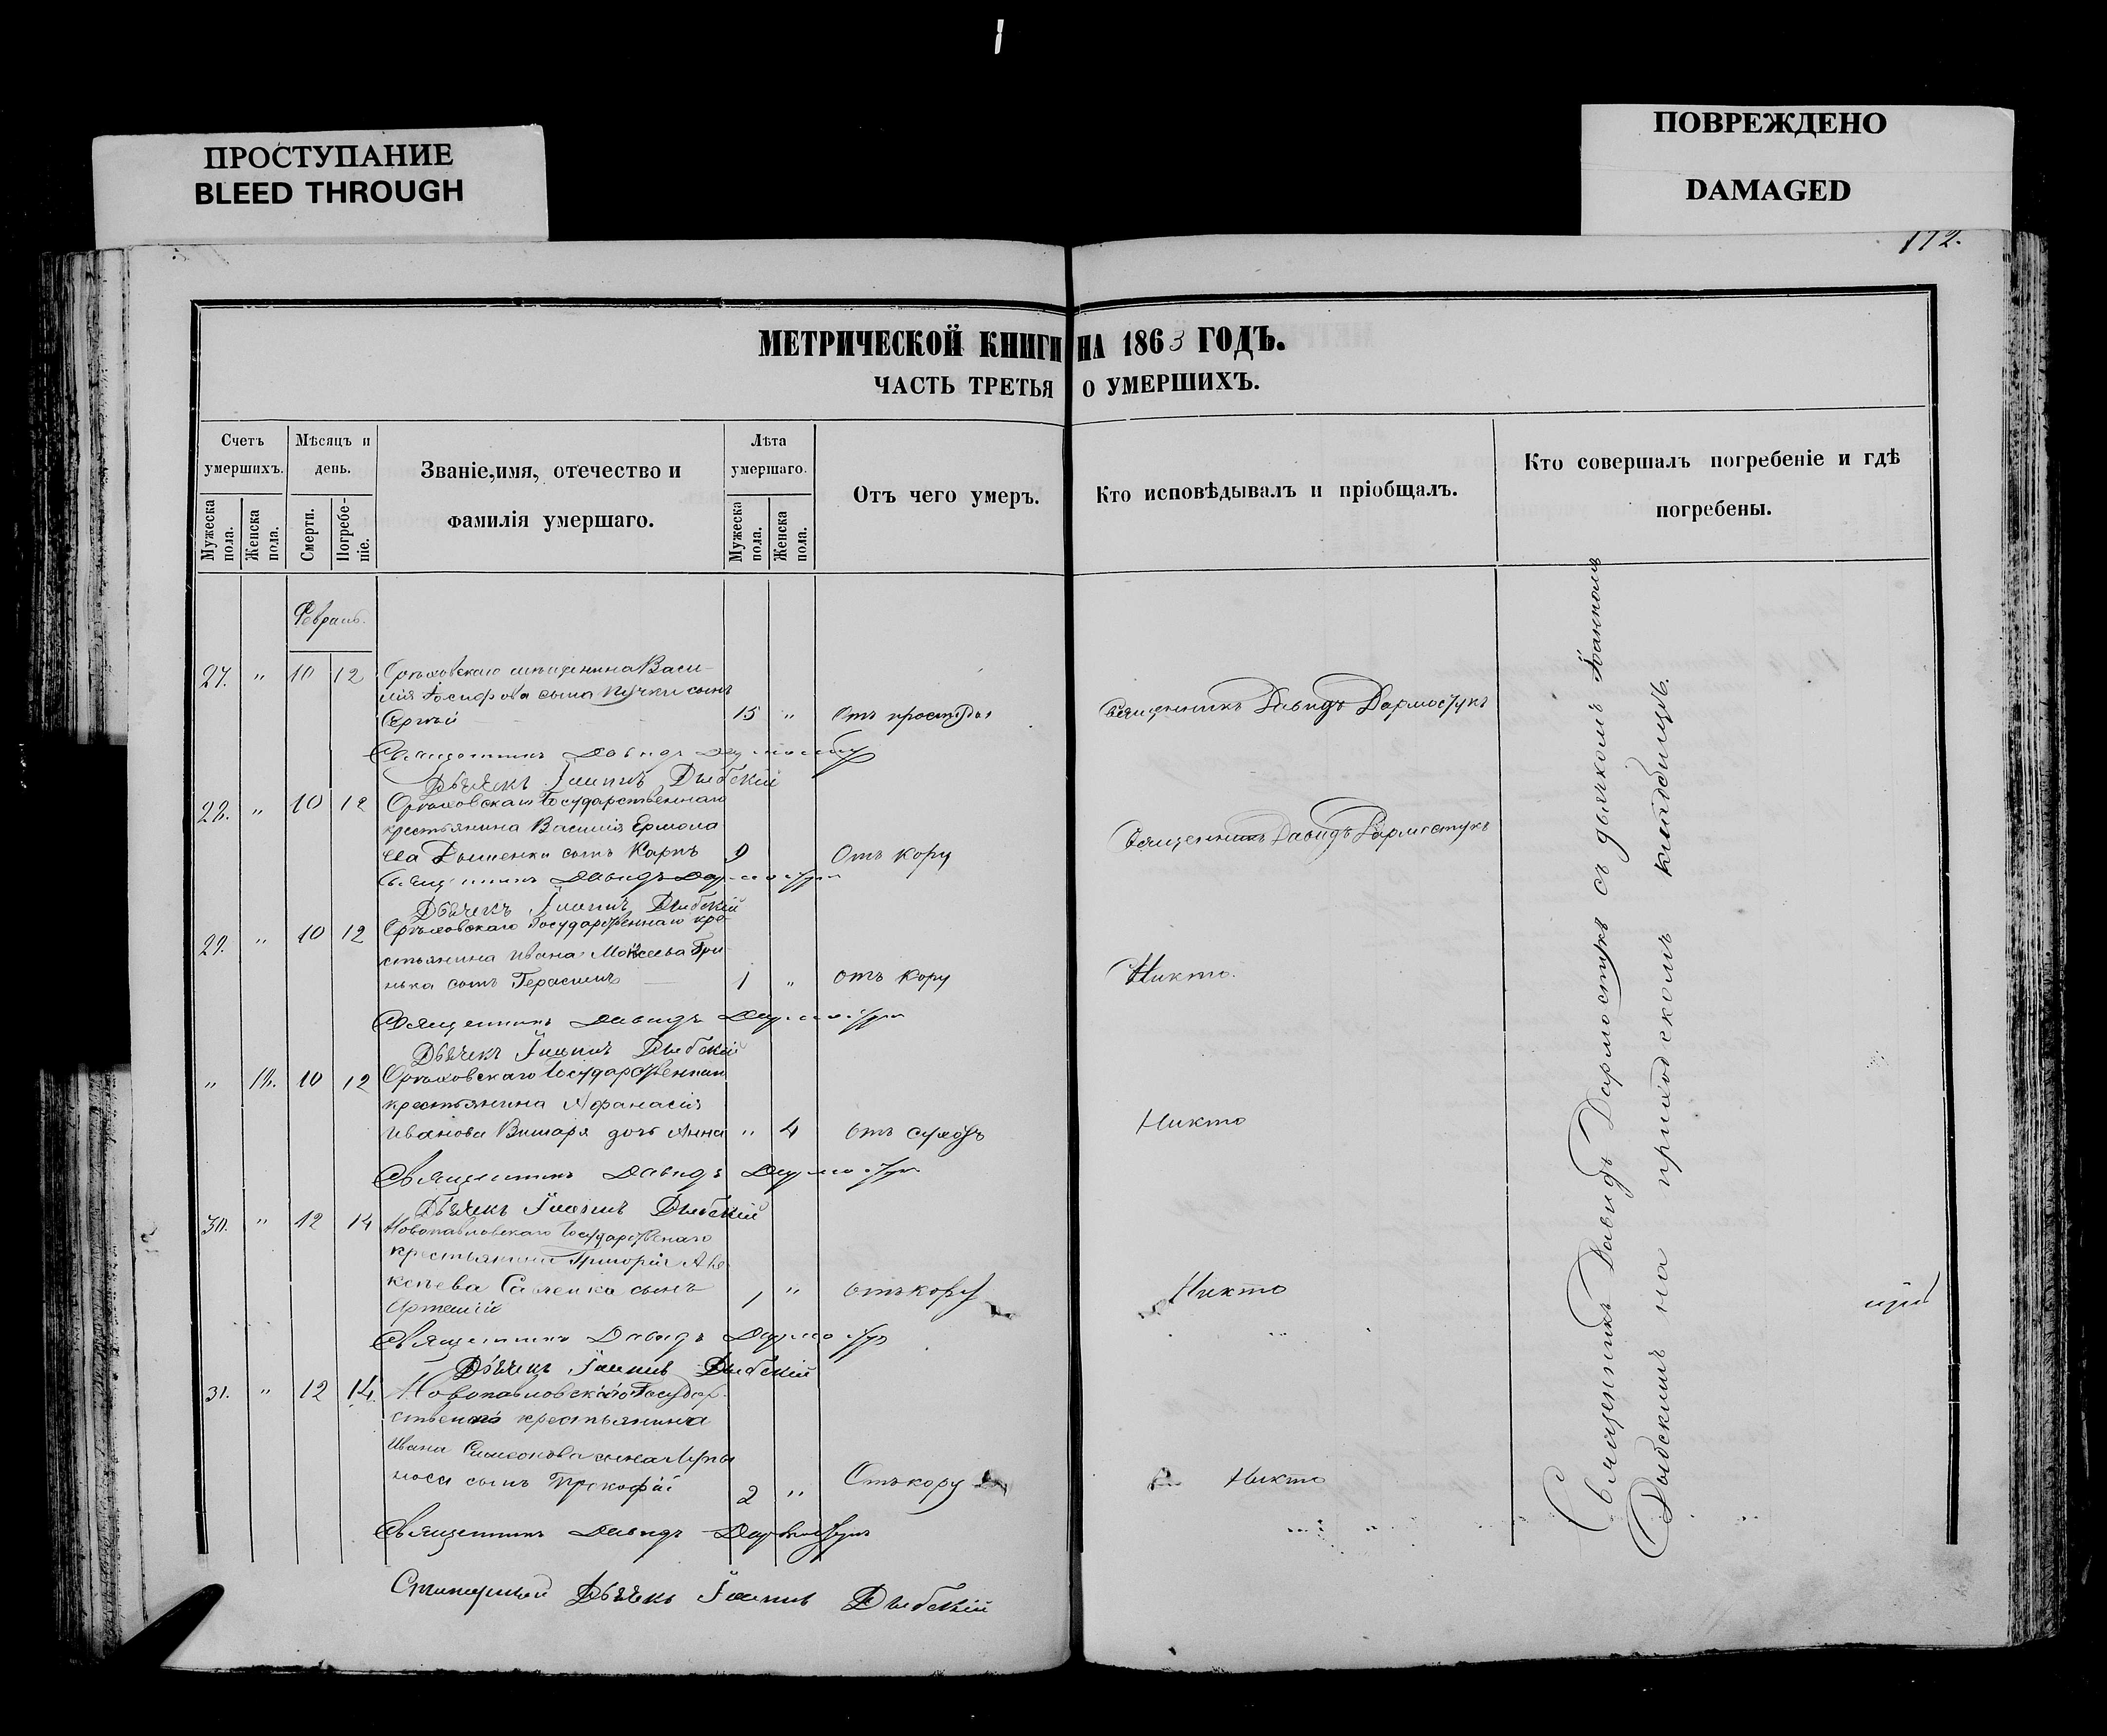 ПРОСТУПАНИЕ
BLEED THROUGH
ПОВРЕЖДЕНО
DAMAGED
172.
МЕТРИЧЕСКОЙ КНИГИ НА 1863 ГОДЪ.
ЧАСТЬ ТРЕТЬЯ О УМЕРШИХЪ.
Счетъ умершихъ.
Мужеска пола.
Женска пола.
Мѣсяцъ и день.
Смерти.
Погребеніе.
Званіе, имя, отечество и фамилія умершаго.
Лѣта умершаго.
Мужеска пола.
Женска пола.
Отъ чего умеръ.
Кто исповѣдывалъ и пріобщалъ.
Кто совершалъ погребеніе и гдѣ погребены.
Февраль.
27. " 10 12 Орѣховскаго мѣщанина Васи-
лія Іосифова сына Пучки сынъ
Сергѣй 15 " Отъ простуды Священникъ Давидъ Дармостукъ
Священникъ Давидъ Дармостукъ
Дьячекъ Іоаннъ Дыбскій
28. " 10 12 Орѣховскаго Государственнаго
крестьянина Василія Ермола
ева Дошенки сынъ Карпъ 9 Отъ кору Священникъ Давидъ Дармостукъ
Священникъ Давидъ Дармостукъ
Дьячекъ Іоаннъ Дыбскій
29. " 10 12 Орѣховскаго Государственнаго кре-
стьянина Ивана Моисеева Гри-
нька сынъ Герасимъ 1 " Отъ кору Никто.
Священникъ Давидъ Дармостукъ
Дьячекъ Іоаннъ Дыбскій
" 18. 10 12 Орѣховскаго Государственнаго
крестьянина Афанасія
Иванова дочь Анна " 4 Отъ сухотъ Никто
Священникъ Давидъ Дармостукъ
Дьячекъ Іоаннъ Дыбскій
30. " 12 14 Новопавловскаго Государственнаго
крестьянина Григорія Але
ксѣева Савченка сынъ
Артемій 1 " Отъ кору Никто
Священникъ Давидъ Дармостукъ
Дьячекъ Іоаннъ Дыбскій
31. " 12 14. Новопавловскаго Государ-
ственнаго крестьянина
Ивана Симеонова сына
носа сынъ Прокофій 2 " Отъ кору Никто
Священникъ Давидъ Дармостукъ
Дьячекъ Іоаннъ Дыбскій
Священникъ Давидъ Дармостукъ съ дьячкомъ Іоанномъ
Дыбскимъ на приходскомъ кладбищѣ.